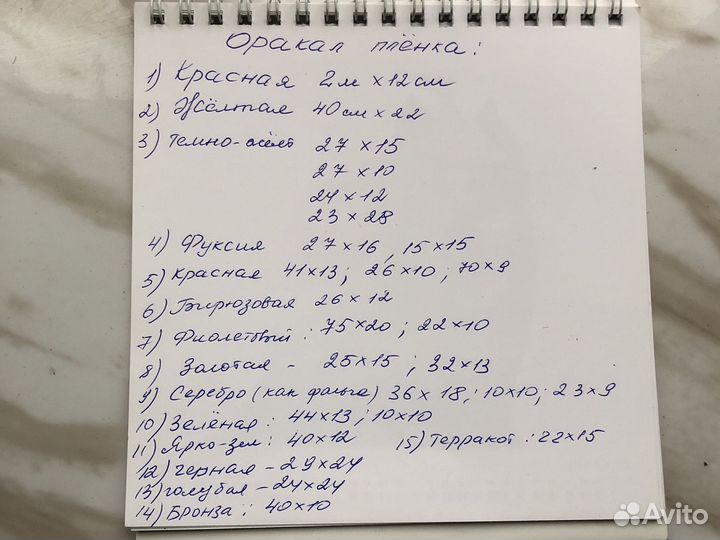 Оракал плёнка:
1) Красная 2м х 12см
2) Жёлтая 40см х 22
3) Темно-жёлт 27 х 15
27 х 10
24 х 12
23 х 28
4) Фуксия 27 х 16, 15 х 15
5) Красная 41х13; 26 х 10; 70 х 9
6) Бирюзовая 26 х 12
7) Фиолетовый: 75х20; 22х10
8) Золотая - 25х15; 32х13
9) Серебро (как фольга) 36х 18; 10х10; 23х9
10) Зелёная: 44х13; 10х10
11) Ярко-зел: 40х12 15) Терракот: 22х15
12) Черная - 29х24
13) голубая - 24х24
14) Бронза: 40х10
Avito